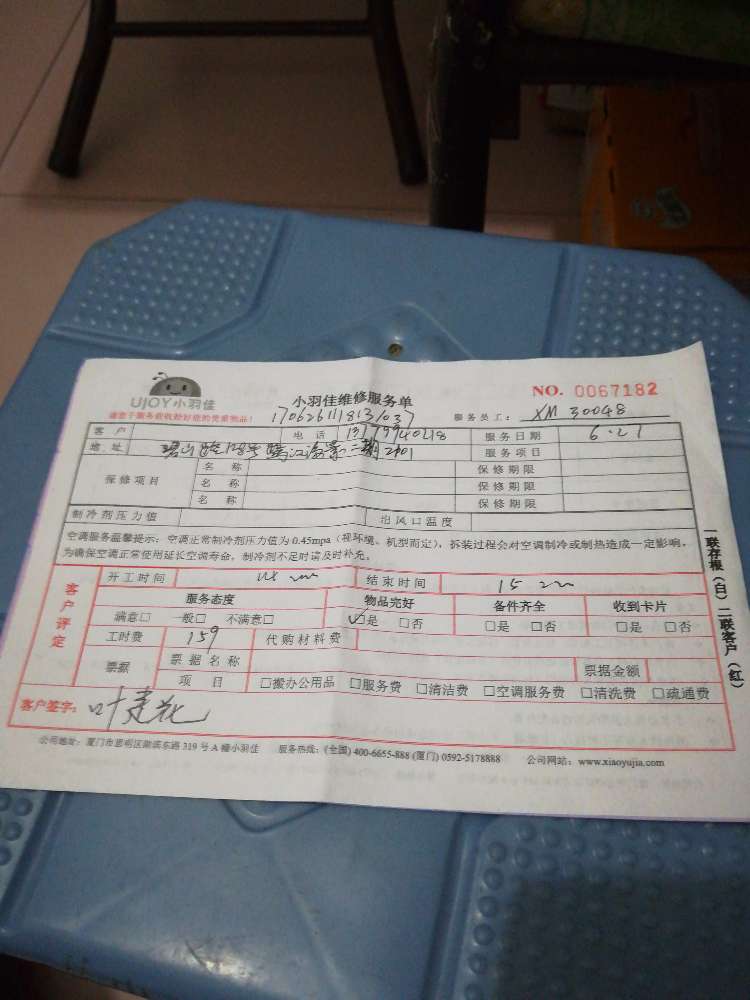 UJOY小羽佳
小羽佳维修服务单
NO. 0067182
服务员工: XM 30048
客户 电话 服务日期 6.27
地址 服务项目
保修项目 名称 保修期限
名称 保修期限
名称 保修期限
制冷剂压力值 出风口温度
空调服务温馨提示:空调正常制冷剂压力值为0.45mpa(视环境、机型而定),拆装过程会对空调制冷或制热造成一定影响,
为确保空调正常使用延长空调寿命,制冷剂不足时请及时补充。
客户评定
开工时间 结束时间
服务态度 物品完好 备件齐全 收到卡片
满意□ 一般□ 不满意□ ☑是 □否 □是 □否 □是 □否
工时费 159 代购材料费
票据 票据名称 票据金额
项目 □搬办公用品 □服务费 □清洁费 □空调服务费 □清洗费 □疏通费
客户签字:
公司地址:厦门市思明区湖滨东路319号A幢小羽佳 服务热线:(全国)400-6655-888 (厦门)0592-5178888 公司网站:www.xiaoyujia.com
一联存根(白)二联客户(红)